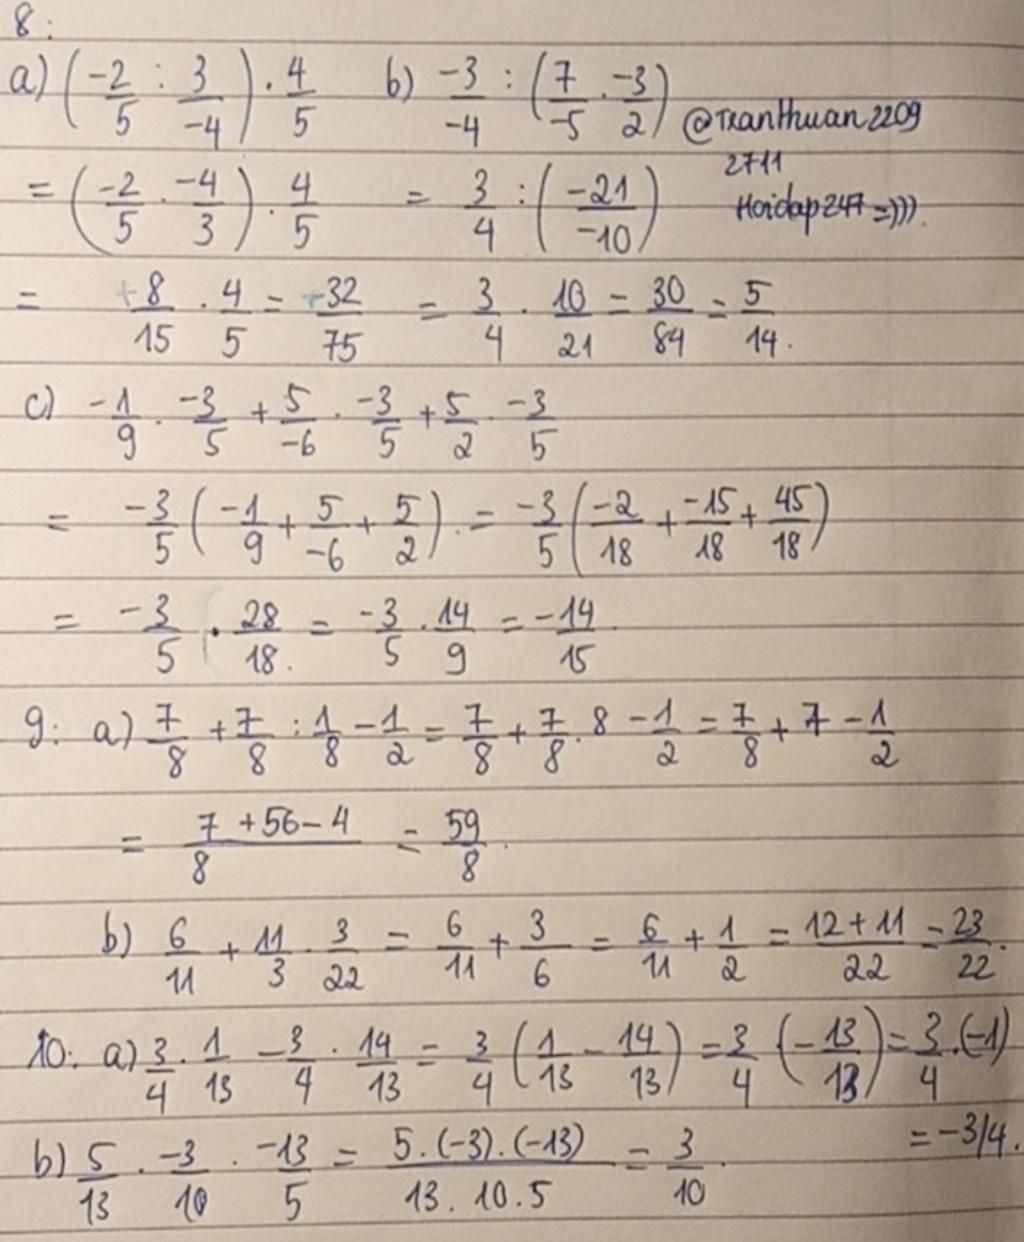 8:
a) (-2/5 : 3/-4) . 4/5 b) -3/-4 : (7/-5 . -3/2) @TranThuan2209
2711
= (-2/5 . -4/3) . 4/5 = 3/4 : (-21/-10) Hoidap247 =))).
= +8/15 . 4/5 = +32/75 = 3/4 . 10/21 = 30/84 = 5/14.
c) -1/9 . -3/5 + 5/-6 . -3/5 + 5/2 . -3/5
= -3/5 (-1/9 + 5/-6 + 5/2). = -3/5 (-2/18 + -15/18 + 45/18)
= -3/5 . 28/18. = -3/5 . 14/9 = -14/15.
9: a) 7/8 + 7/8 : 1/8 - 1/2 = 7/8 + 7/8 . 8 - 1/2 = 7/8 + 7 - 1/2
= 7 + 56 - 4/8 = 59/8.
b) 6/11 + 11/3 . 3/22 = 6/11 + 3/6 = 6/11 + 1/2 = 12 + 11/22 = 23/22.
10: a) 3/4 . 1/13 - 3/4 . 14/13 = 3/4 (1/13 - 14/13) = 3/4 (-13/13) = 3/4 . (-1)
= -3/4.
b) 5/13 . -3/10 . -13/5 = 5.(-3).(-13)/13.10.5 = 3/10.